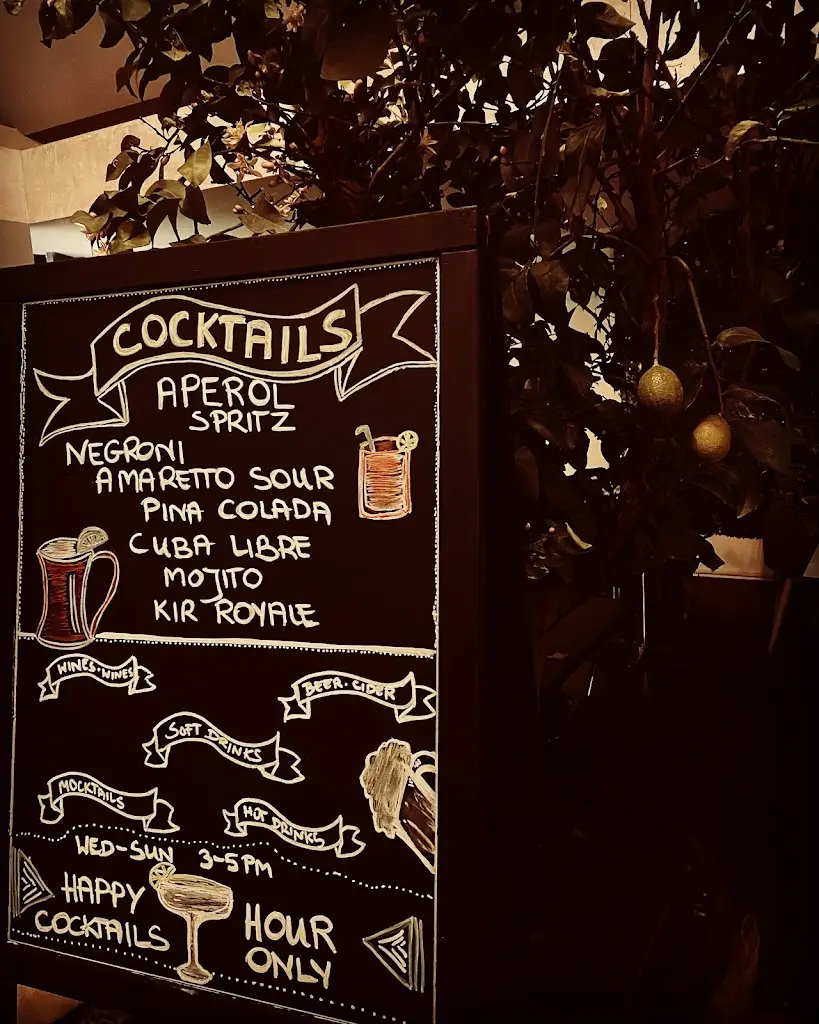 COCKTAILS
APEROL
SPRITZ
NEGRONI
AMARETTO SOUR
PINA COLADA
CUBA LIBRE
MOJITO
KIR ROYALE
WINES·WINES
BEER·CIDER
SOFT DRINKS
MOCKTAILS
HOT DRINKS
WED-SUN 3-5PM
HAPPY HOUR
COCKTAILS ONLY